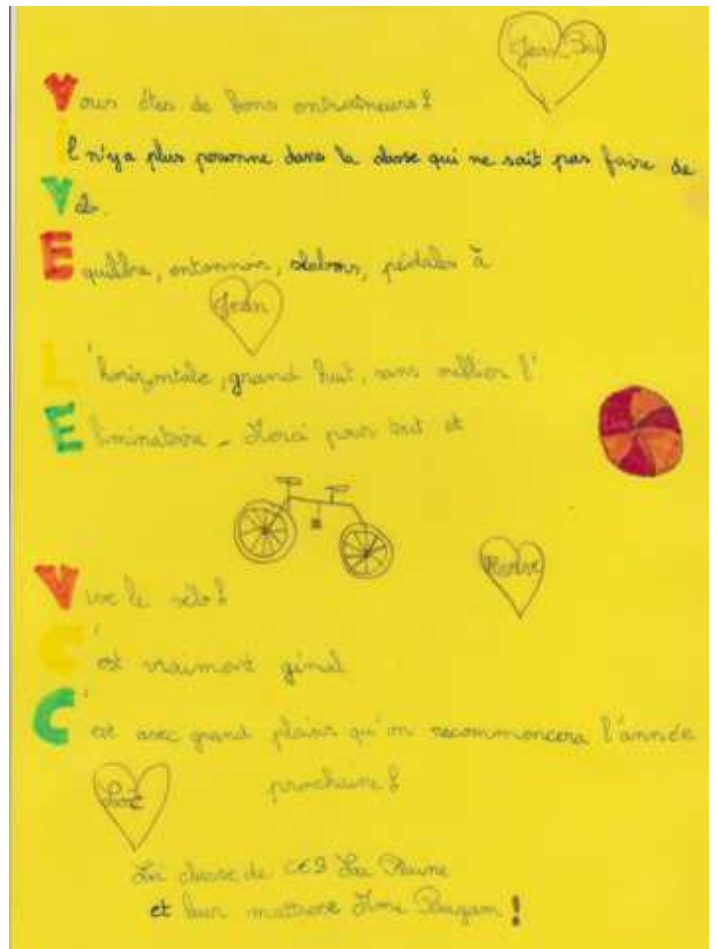 Jean-Paul
Vous êtes de bons entraîneurs!
Il n'y a plus personne dans la classe qui ne sait pas faire de
Vélo.
Equilibre, entonnoirs, slaloms, pédales à
Jean
L'horizontale, grand huit, sans oublier l'
Eliminatoire - Merci pour tout et
Hervé
Vive le vélo!
C'est vraiment génial
C'est avec grand plaisir qu'on recommencera l'année
prochaine!
Loïc
La classe de CE2 La Plaine
et leur maîtresse Mme !